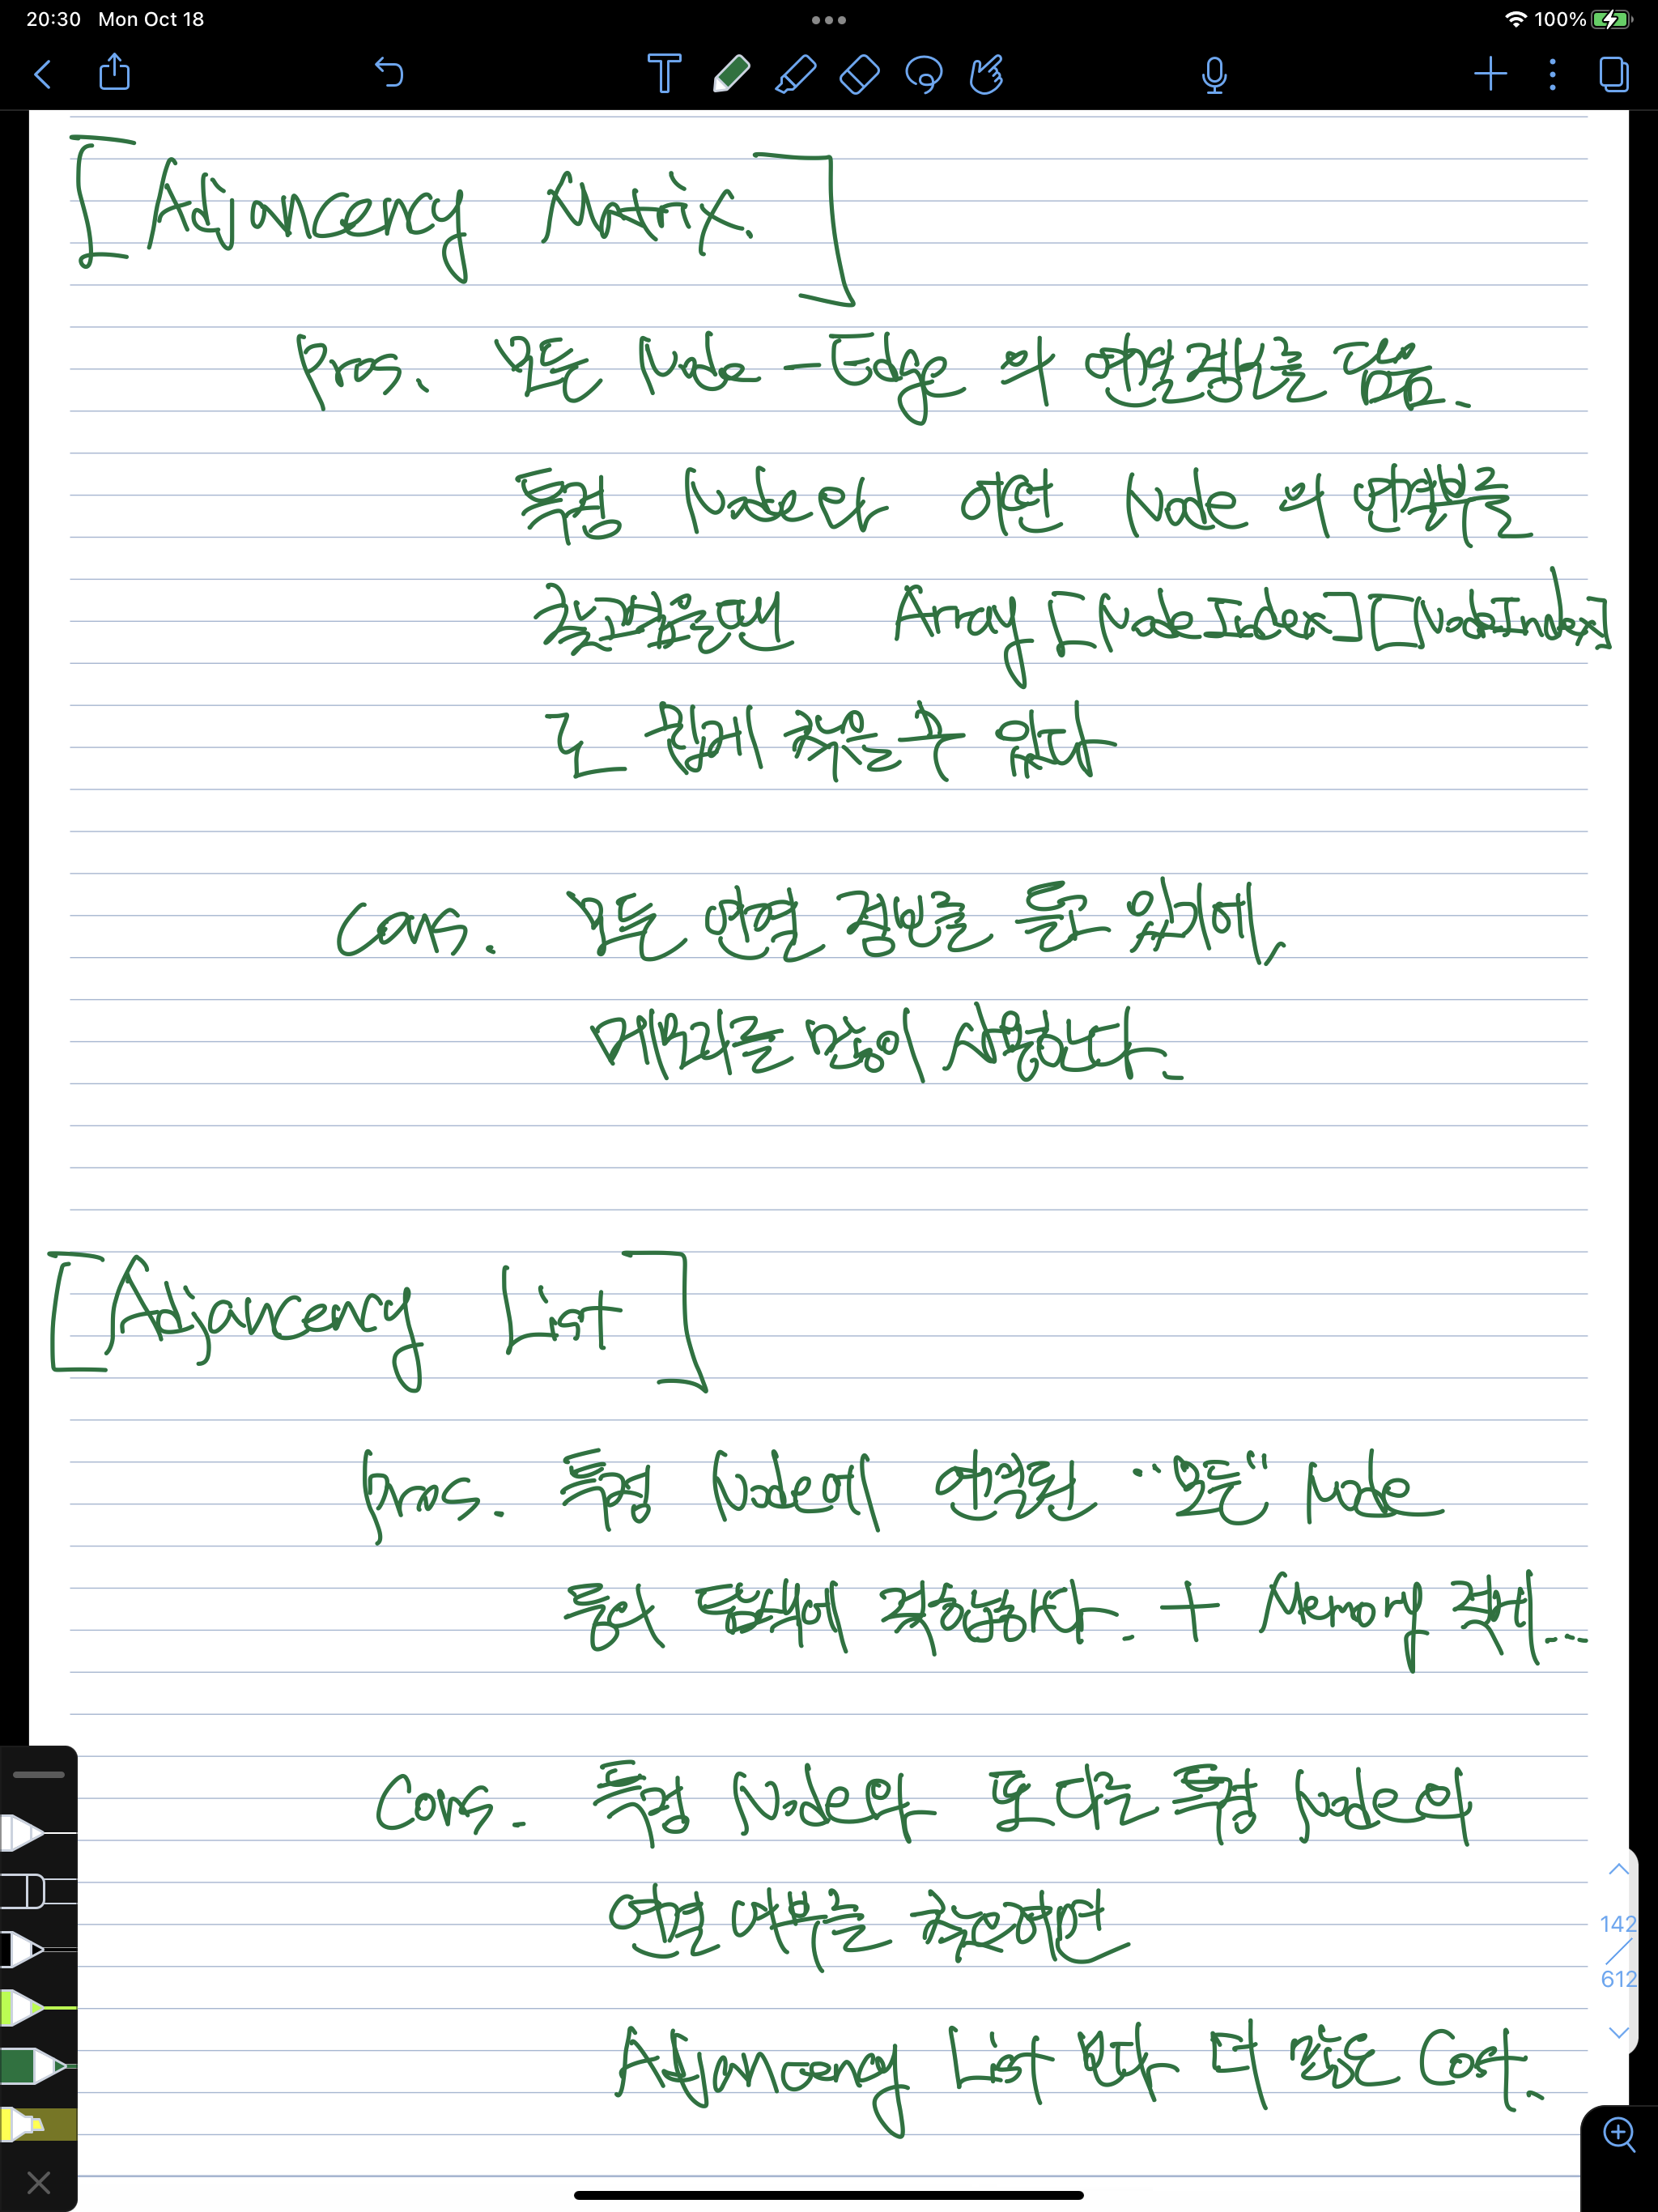 20:30 Mon Oct 18
100%
[Adjancency Matrix.]
Pros. 모든 Node - Edge 의 연결정보를 담음.
특정 Node와 어떤 Node 의 연결을
Array [NodeIndex][NodeIndex]
로 쉽게 찾을수 있다
Cons. 모든 연결 정보를 들고 있기에,
메모리를 많이 사용한다.
[Adjancency List]
Pros. 특정 Node에 연결된 "모든" Node
동시 탐색에 적합하다. + Memory 적게...
Cons. 특정 Node와 또 다른 특정 Node의
연결 여부를 찾으려면
Adjancency List 보다 더 많은 Cost.
142
612